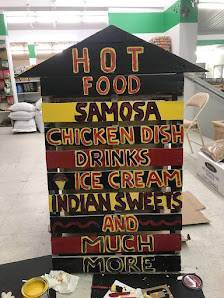 HOT
FOOD
SAMOSA
CHICKEN DISH
DRINKS
ICE CREAM
INDIAN SWEETS
AND
MUCH
MORE